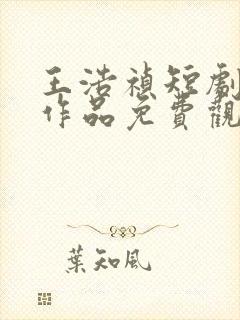 王浩禎短劇
作品免費觀
葉知風